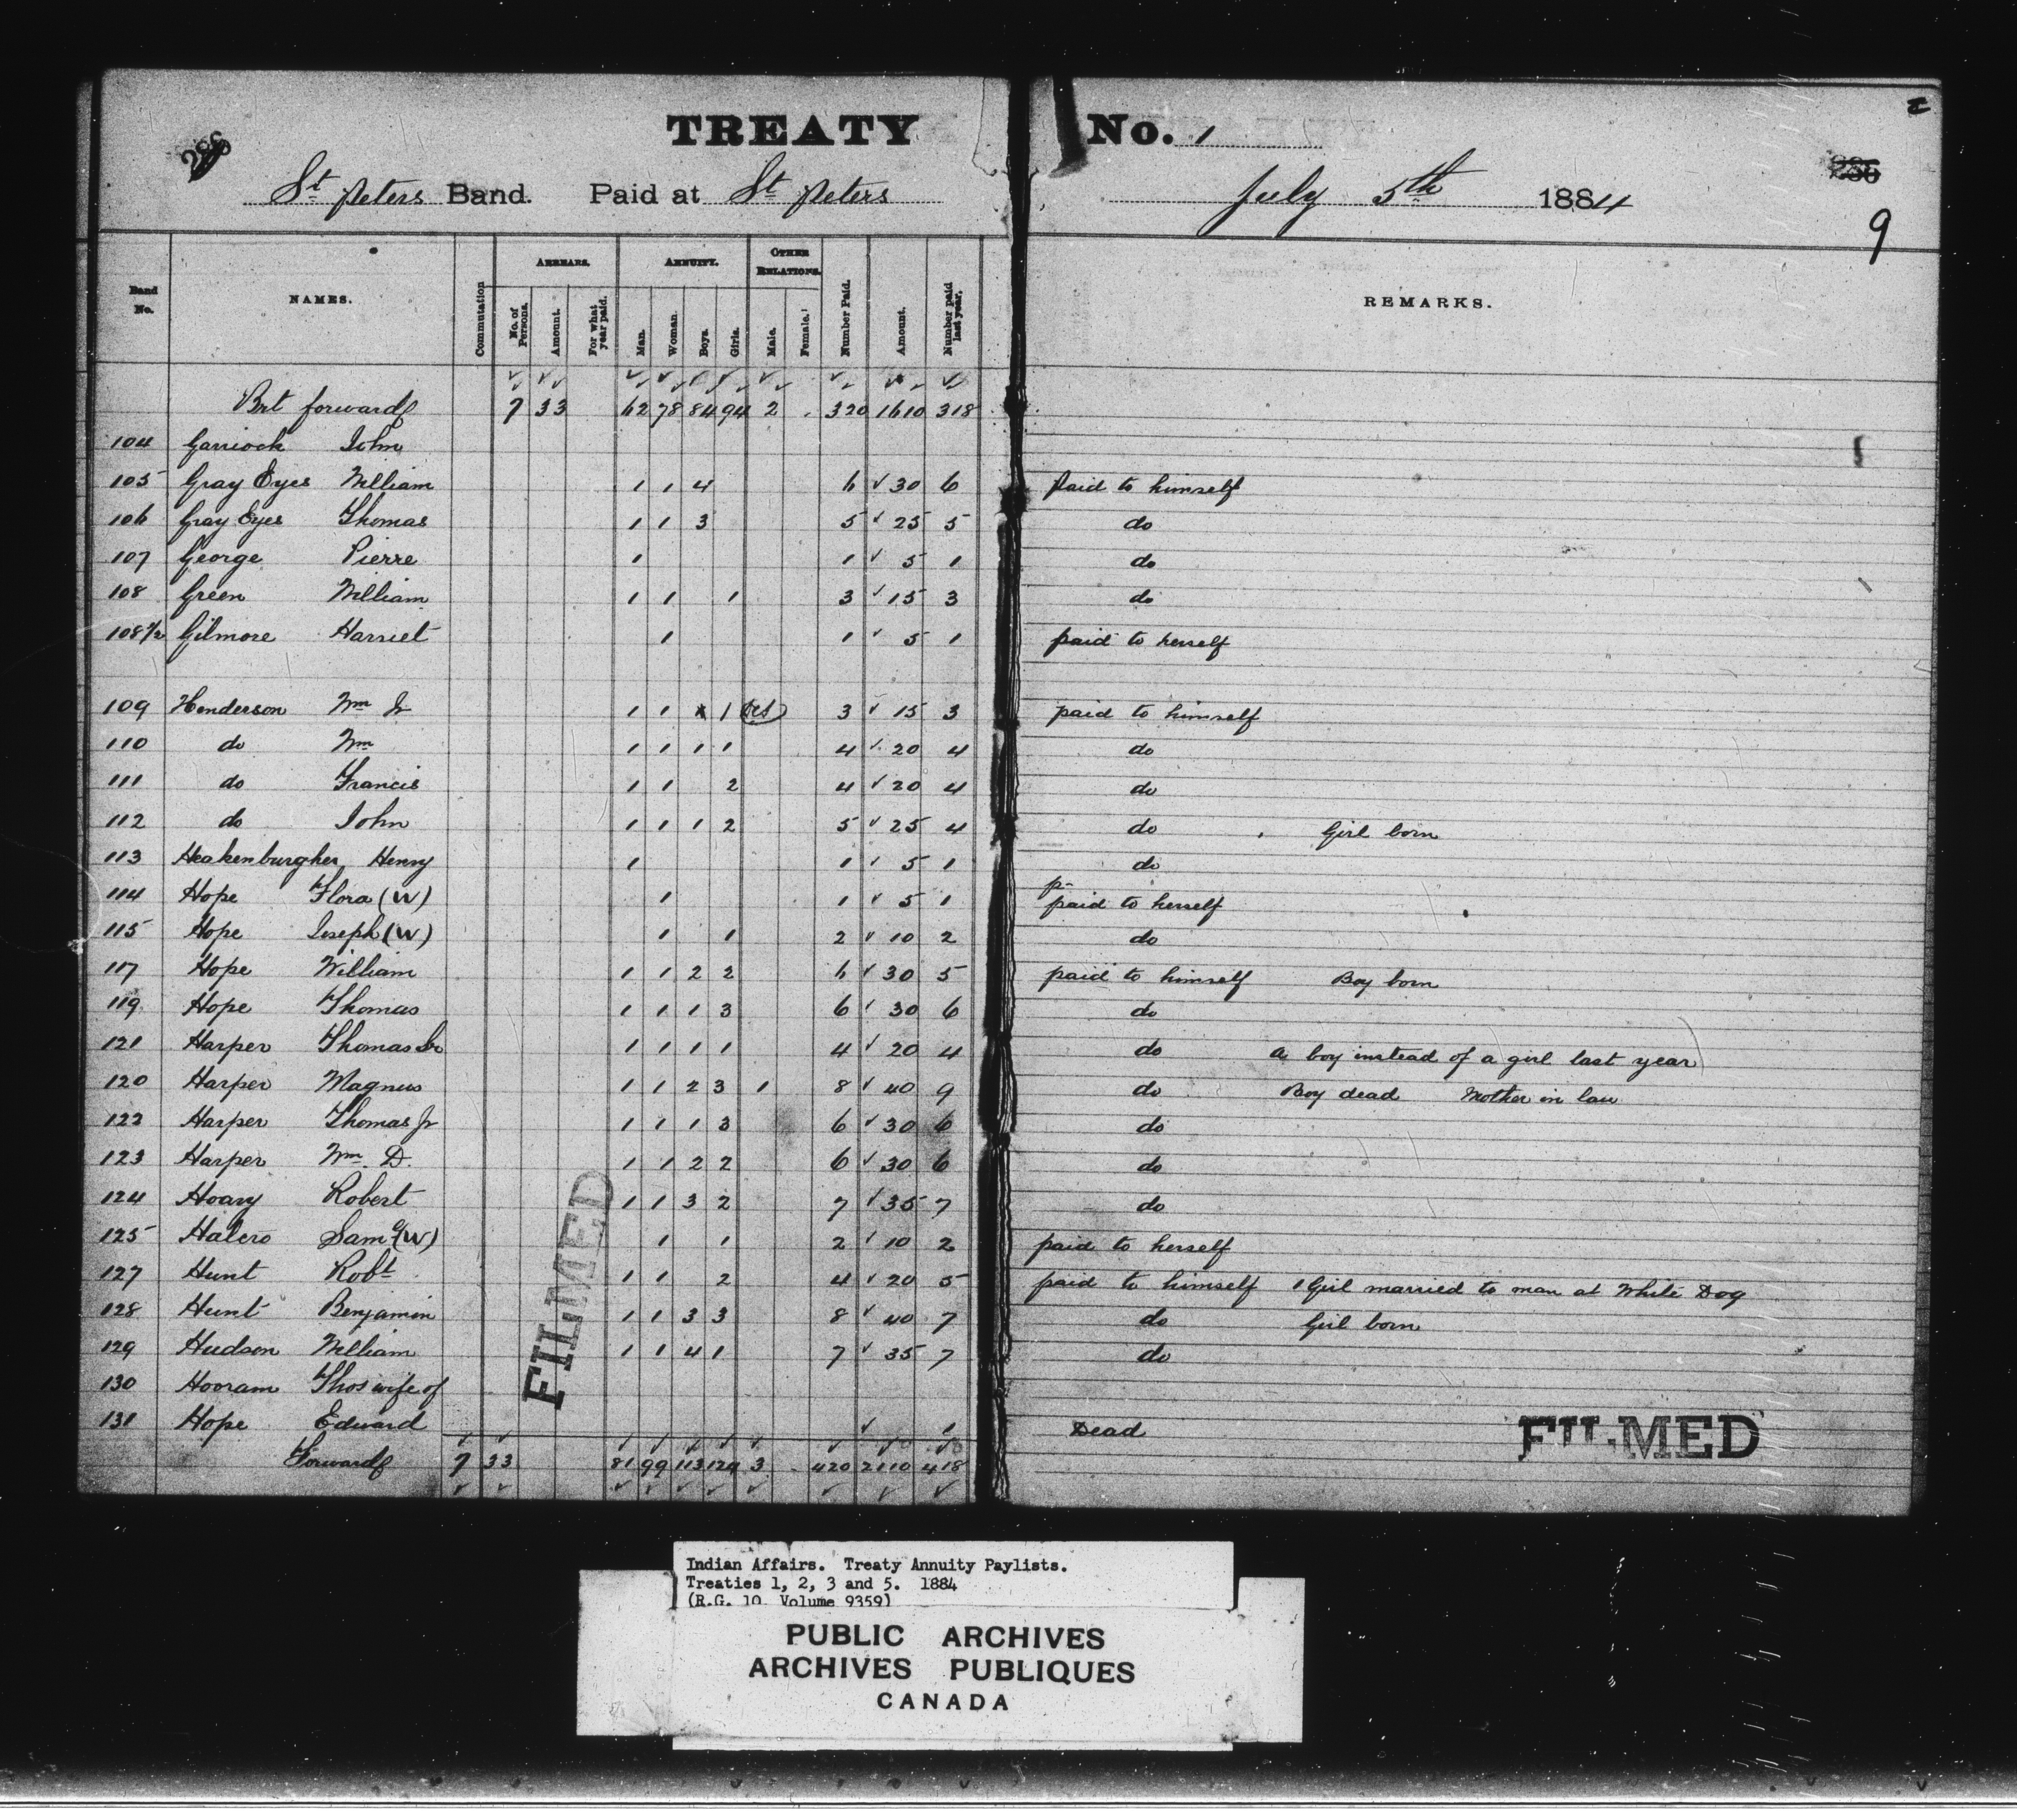 TREATY No. 1
St Peters Band. Paid at St Peters July 5th 1884
9
Band No. NAMES. Commutation ARREARS. No. of Persons. Amount. For what year paid. ANNUITY. Man. Woman. Boys. Girls. OTHER RELATIONS. Male. Female. Number Paid. Amount. Number paid last year. REMARKS.
Brt forward 7 33 62 78 84 94 2 320 1610 318
104 Garriock John
105 Gray Eyes William 1 1 4 6 30 6 Paid to himself
106 Gray Eyes Thomas 1 1 3 5 25 5 do
107 George Pierre 1 1 5 1 do
108 Green William 1 1 1 3 15 3 do
108½ Gilmore Harriet 1 1 5 1 paid to herself
109 Henderson Wm Jr 1 1 1 3 15 3 paid to himself
110 do Wm 1 1 1 1 4 20 4 do
111 do Francis 1 1 2 4 20 4 do
112 do John 1 1 1 2 5 25 4 do Girl born
113 Heakenburgher Henry 1 1 5 1 do
114 Hope Flora (W) 1 1 5 1 paid to herself
115 Hope Joseph (W) 1 1 2 10 2 do
117 Hope William 1 1 2 2 6 30 5 paid to himself Boy born
119 Hope Thomas 1 1 1 3 6 30 6 do
121 Harper Thomas Sr 1 1 1 1 4 20 4 do a boy instead of a girl last year
120 Harper Magnus 1 1 2 3 1 8 40 9 do Boy dead Mother in law
122 Harper Thomas Jr 1 1 1 3 6 30 6 do
123 Harper Wm. D. 1 1 2 2 6 30 6 do
124 Hoary Robert 1 1 3 2 7 35 7 do
125 Halcro Saml (W) 1 1 2 10 2 paid to herself
127 Hunt Robt 1 1 2 4 20 5 paid to himself 1 Girl married to man at White Dog
128 Hunt Benjamin 1 1 3 3 8 40 7 do Girl born
129 Hudson William 1 1 4 1 7 35 7 do
130 Hooram Thos wife of
131 Hope Edward 1 Dead
Forward 7 33 81 99 113 124 3 420 2110 418
FILMED
FILMED
Indian Affairs. Treaty Annuity Paylists.
Treaties 1, 2, 3 and 5. 1884
(R.G. 10 Volume 9359)
PUBLIC ARCHIVES
ARCHIVES PUBLIQUES
CANADA